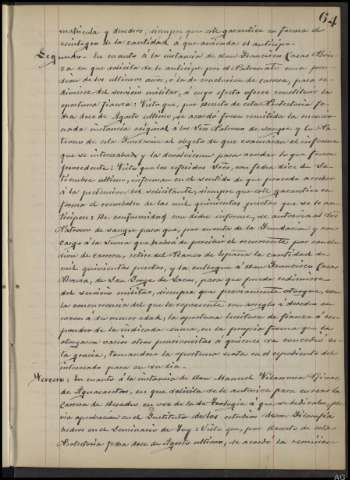 64
matrícula y derechos, siempre que se garantice en forma el
reintegro de la cantidad á que ascienda el anticipo.
Segundo: En cuanto á la instancia de don Francisco Casas
en que solicita se le anticipe por el Patronato una
de los últimos años, á la de conclusión de carrera, para
dimirse del servicio militar, á cuyo efecto ofrece constituir la
oportuna fianza: Visto que, por decreto de esta Protectoría
doce de Agosto último, se acordó fuese remitida la
instancia original á los Sres Patronos de sangre y
de esta fundación al objeto de que evacuaran el informe
que se interesaba y la devolvieran para acordar lo que fuera
procedente: Visto que los referidos Sres, con fecha diez de
tiembre último, informan en el sentido de que procede acceder
á la petición del solicitante, siempre que este garantice en
forma el reembolso de las mil quinientas pesetas que se le
ticipen: De conformidad con dicho informe, se autoriza al Sr
Patrono de sangre para que, por cuenta de la fundación y con
cargo á la suma que habrá de percibir el recurrente por
de carrera, retire del Banco de España la cantidad de
mil quinientas pesetas, y la entregue á don Francisco Casas
de San Jorge de Sacos, para que pueda redimirse
del servicio militar, siempre que previamente otorgue, con
la concurrencia del que le represente con arreglo á derecho
la oportuna escritura de fianza á
de la indicada suma, en la propia forma que la
otorgaron varios otros pensionistas á quienes se concedió
la gracia, tomándose la oportuna nota en el expediente del
interesado para en su día.
Tercero: En cuanto á la instancia de don Manuel Vilanova
de Aguasantas, en que solicita se le autorice para cursar la
carrera de Derecho en vez de la de Teología á que se dedicaba,
aprobación en el Instituto de los estudios de Filosofía
hechos en el Seminario de Tuy: Visto que, por decreto de esta
Protectoría fecha doce de Agosto último, se acordó la remisión
AG